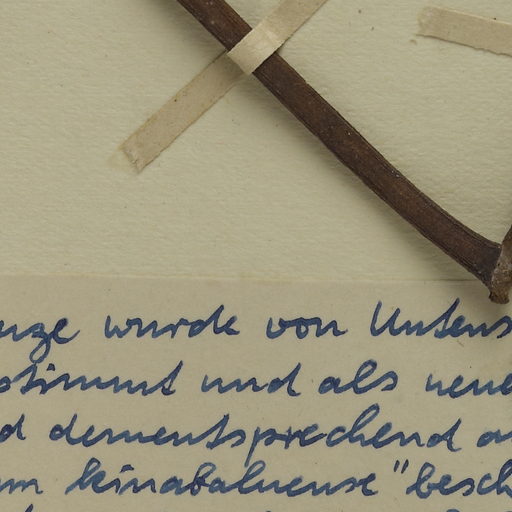 nze wurde von Untens
stimmt und als neue
d dementsprechend a
um kinabaluense" besch